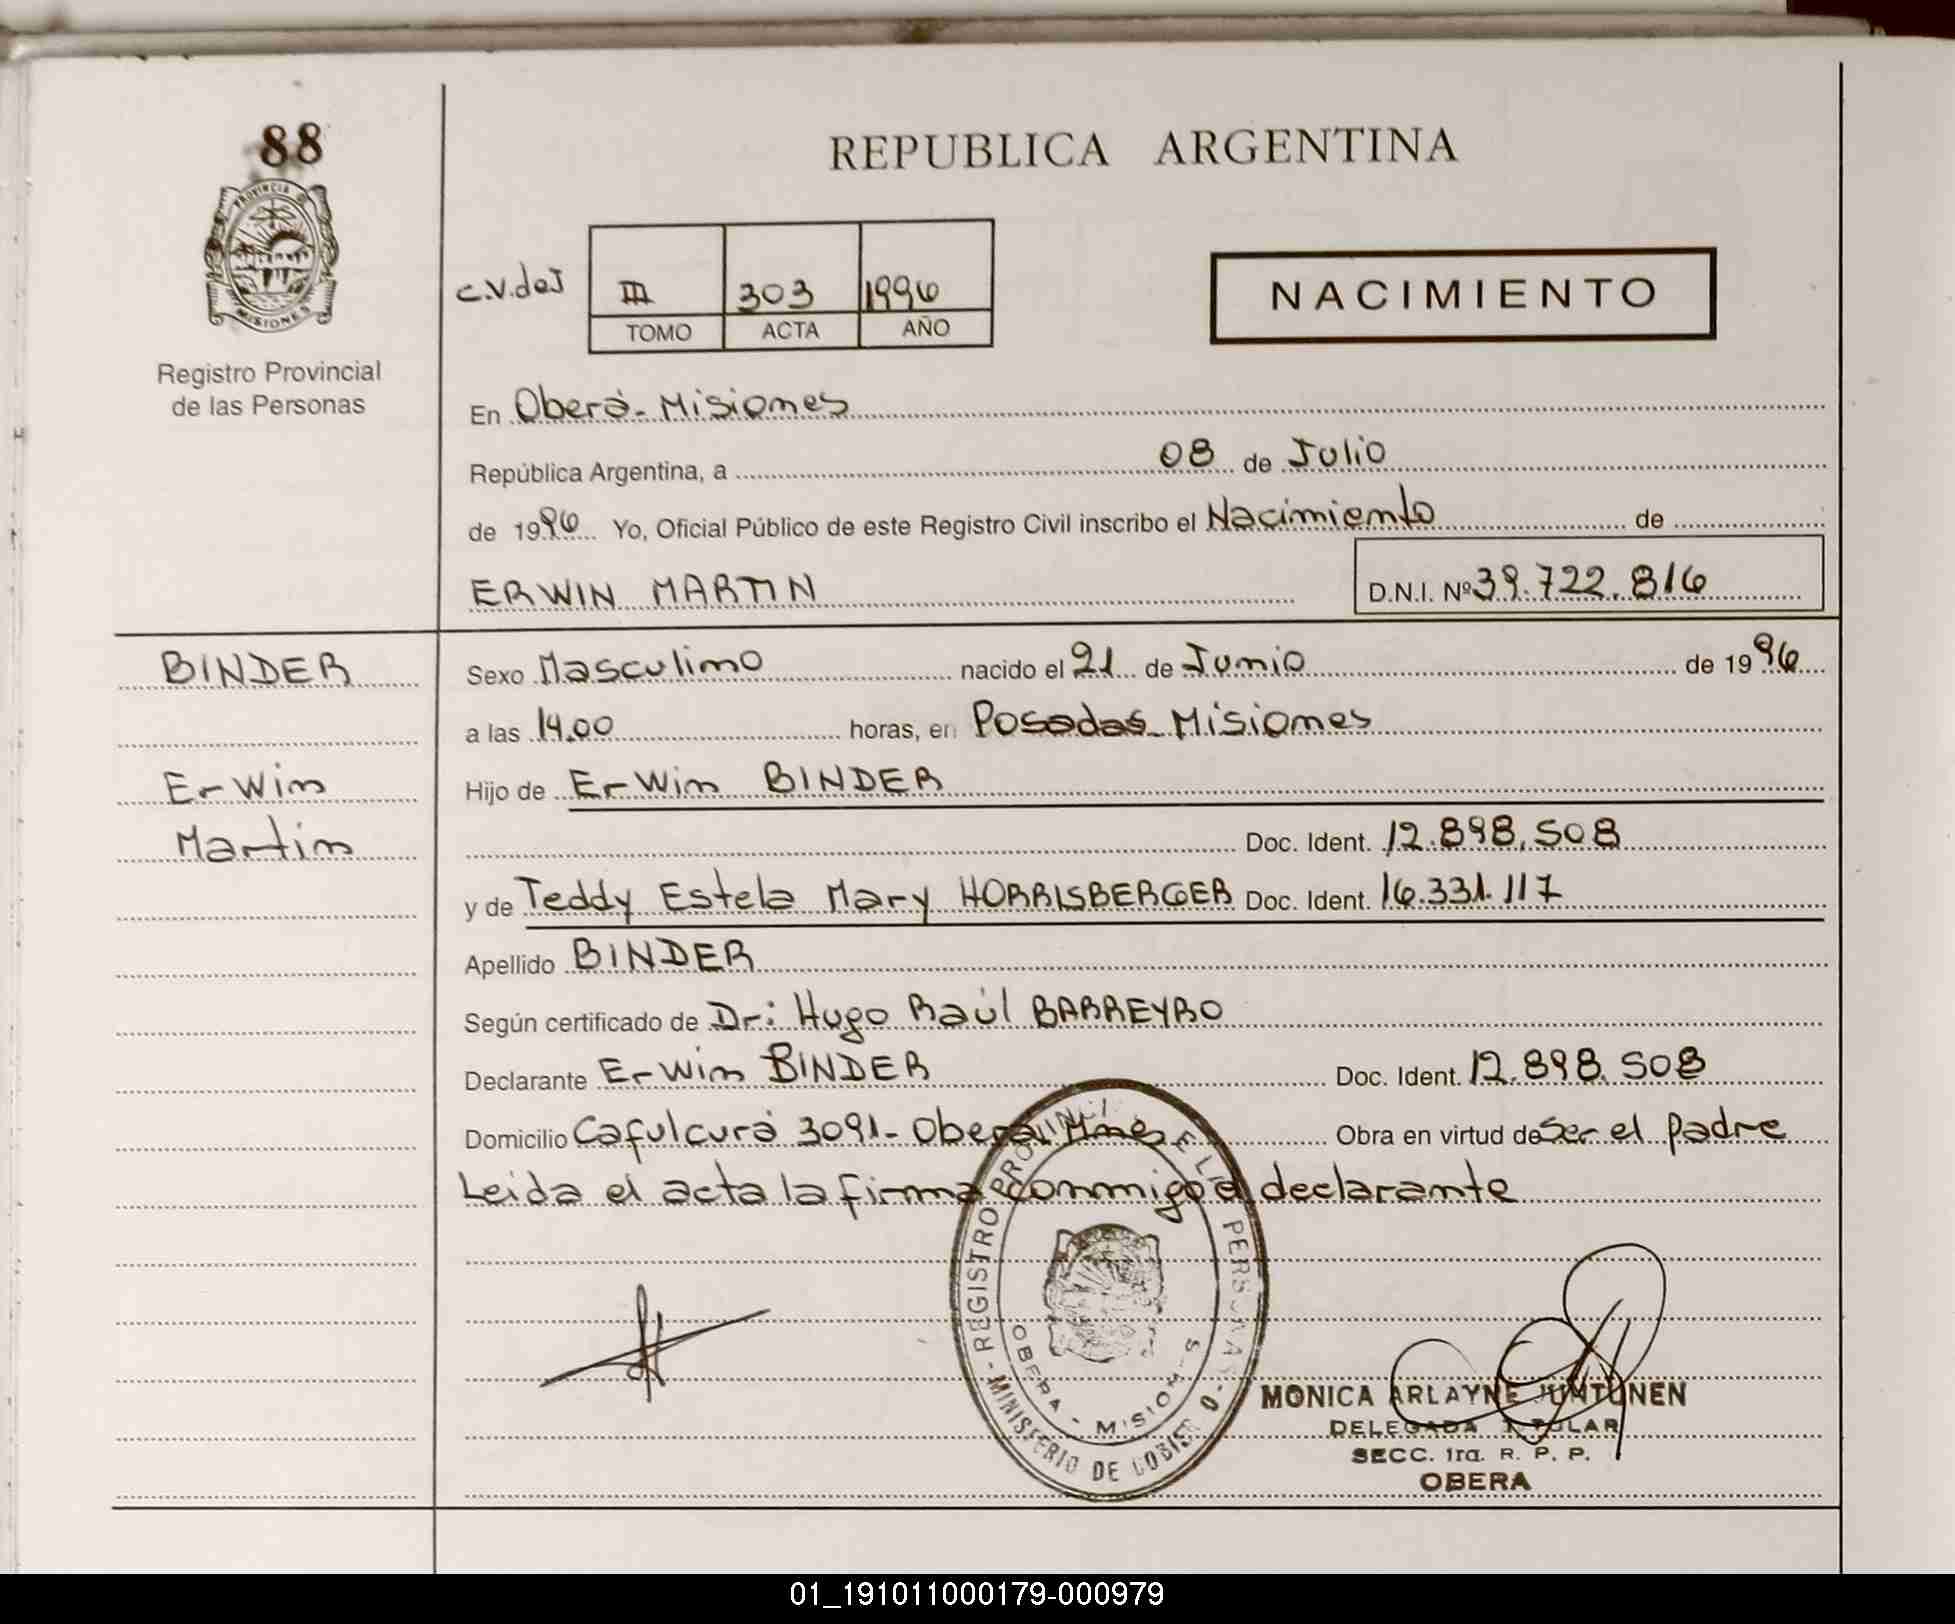 88
PROVINCIA D
MISIONES
Registro Provincial
de las Personas
REPUBLICA ARGENTINA
c.v.deJ
III 303 1996
TOMO ACTA AÑO
NACIMIENTO
En Oberá - Misiones
República Argentina, a 08 de Julio
de 1996 Yo, Oficial Público de este Registro Civil inscribo el Nacimiento de
ERWIN MARTIN D.N.I. Nº 39.722.816
BINDER
Erwin
Martin
Sexo Masculino nacido el 21 de Junio de 1996
a las 14.00 horas, en Posadas - Misiones
Hijo de Erwin BINDER
Doc. Ident. 12.898.508
y de Teddy Estela Mary HORRISBERGER Doc. Ident. 16.331.117
Apellido BINDER
Según certificado de Dr: Hugo Raúl BARREYRO
Declarante Erwin BINDER Doc. Ident. 12.898.508
Domicilio Cafulcurá 3091 - Oberá Mnes Obra en virtud de ser el padre
Leida el acta la firma conmigo el declarante
REGISTRO PROVINCI E L PERSONAS
OBERA - MISIONES
MINISTERIO DE GOBIER
MONICA ARLAYNE JUNTUNEN
DELEGADA TITULAR
SECC. 1ra. R. P. P.
OBERA
01_191011000179-000979